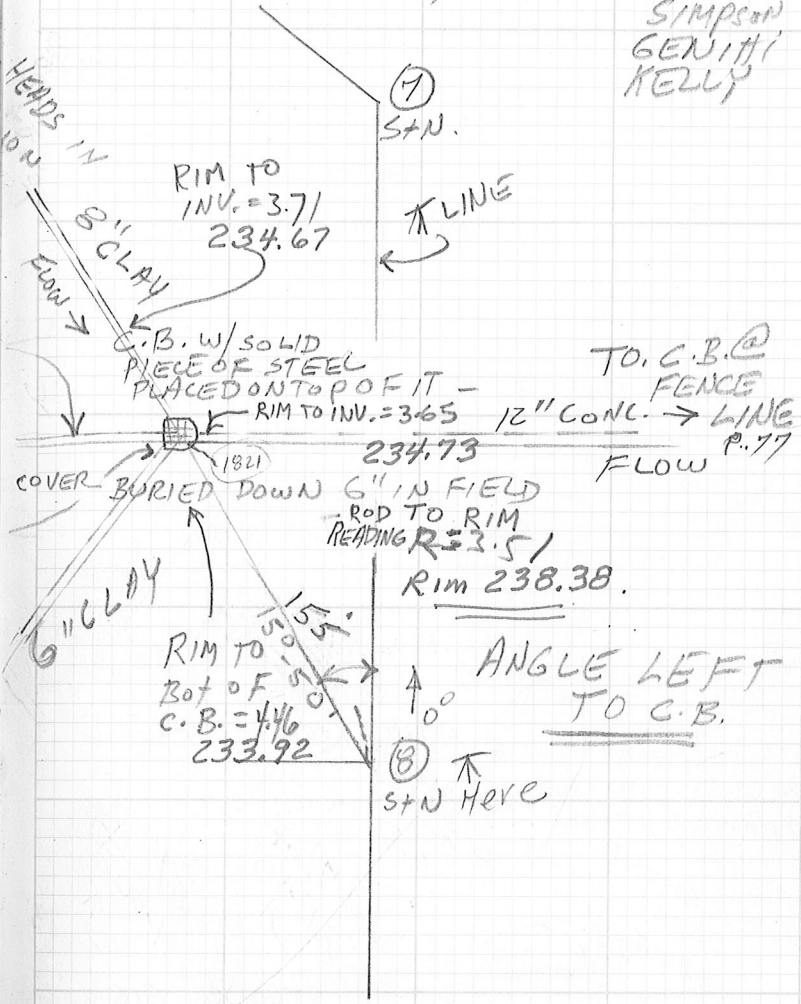 SIMPSON
KELLY
7
StN.
HEADS IN
RIM TO
INV. = 3.71
234.67
LINE
8" CLAY
FLOW
C.B. W/SOLID
PIECE OF STEEL
PLACED ON TOP OF IT -
RIM TO INV. = 3.65
234.73
12" CONC.
TO. C.B. @
FENCE
LINE
P.. 77
FLOW
1821
COVER
BURIED DOWN 6" IN FIELD
ROD TO RIM
READING R = 3.51
Rim 238.38.
6" CLAY
155'
RIM TO
Bot OF
C.B. = 4.46
233.92
0°
ANGLE LEFT
TO C.B.
8
StN Here